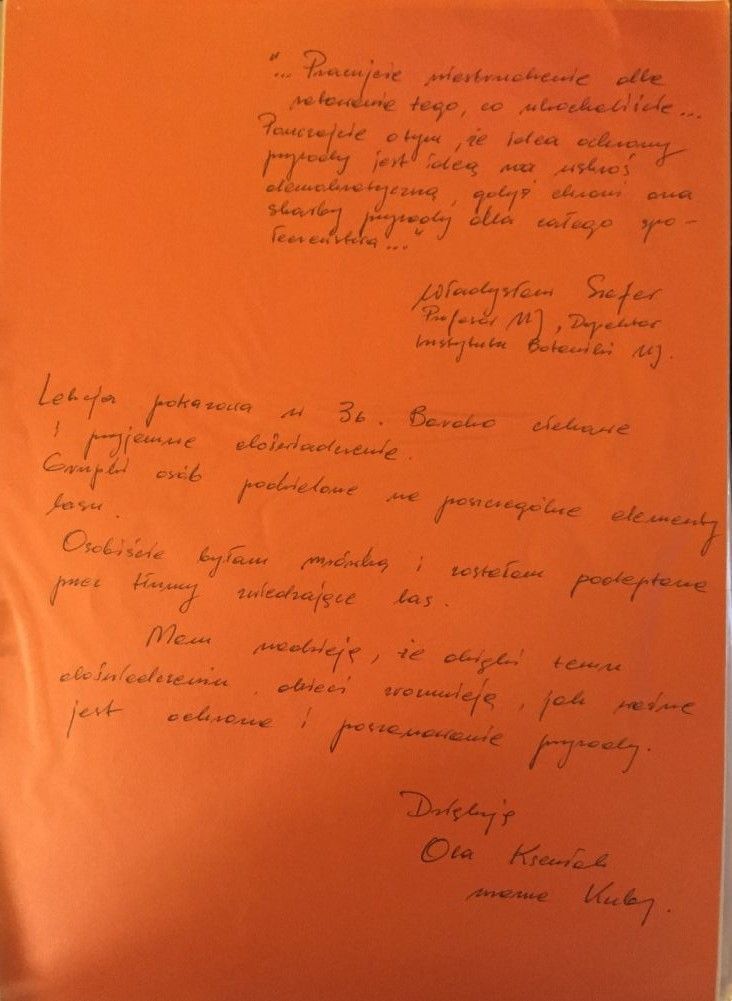 "... Pracujcie niestrudzenie dla
ratowania tego, co ukochaliście...
Pamiętajcie o tym, że idea ochrony
przyrody jest ideą na wskroś
demokratyczną, gdyż chroni ona
skarby przyrody dla całego spo-
łeczeństwa..."
Władysław Szafer
Profesor UJ, Dyrektor
Instytutu Botaniki UJ.
Lekcja pokazowa w 3b. Bardzo ciekawe
i przyjemne doświadczenie.
Grupki osób podzielone na poszczególne elementy
lasu.
Osobiście byłam mrówką i zostałam podeptana
przez tłumy zwiedzające las.
Mam nadzieję, że dzięki temu
doświadczeniu dzieci zrozumieją, jak ważne
jest ochrona i poszanowanie przyrody.
Dziękuję
Ola
mama Kuby.